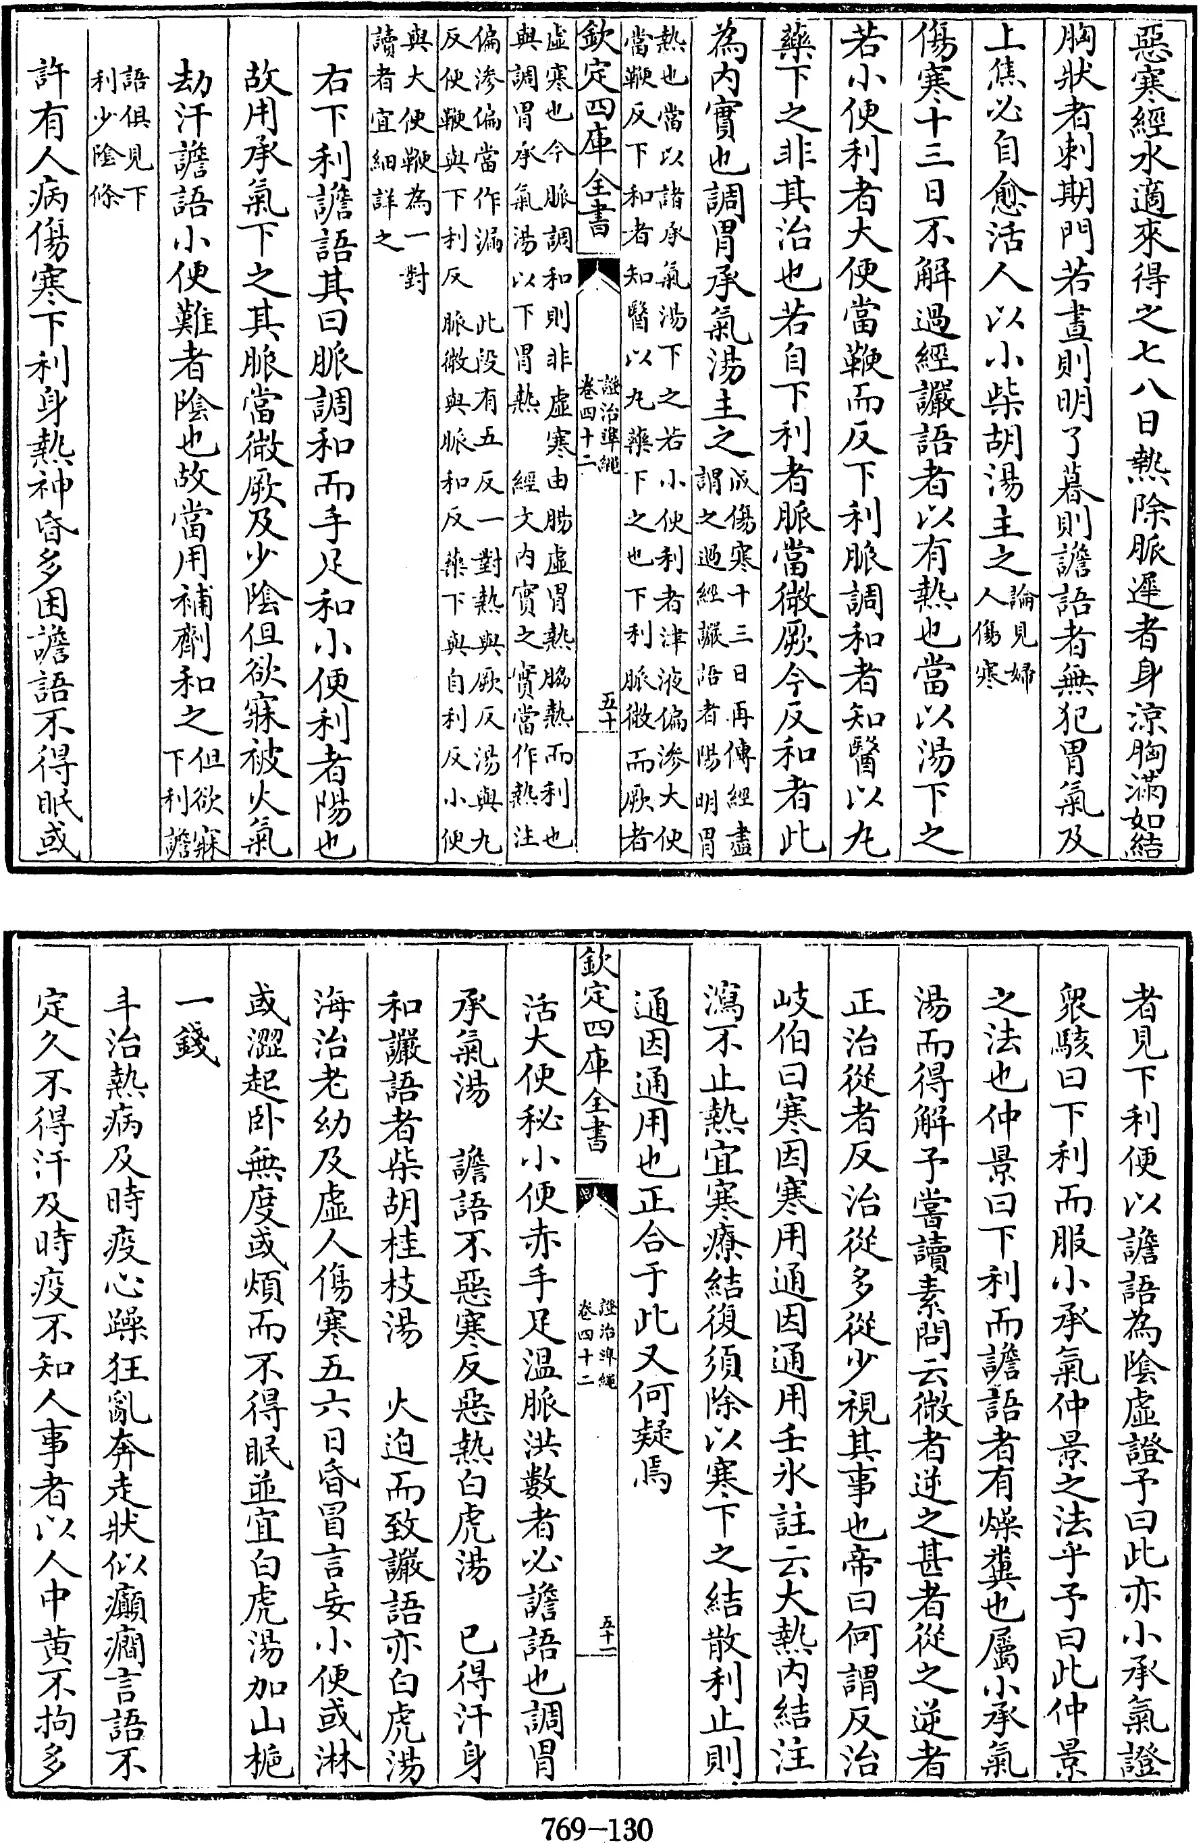 惡寒經水適來得之七八日熱除脈遲者身涼胸滿如結
胸狀者刺期門若晝則明了暮則譫語者無犯胃氣及
上焦必自愈活人以小柴胡湯主之論見婦
人傷寒
傷寒十三日不解過經讝語者以有熱也當以湯下之
若小便利者大便當鞕而反下利脈調和者知醫以丸
藥下之非其治也若自下利者脈當微厥今反和者此
為內實也調胃承氣湯主之成傷寒十三日再傳經盡
謂之過經讝語者陽明胃
熱也當以諸承氣湯下之若小便利者津液偏滲大便
當鞕反下和者知醫以丸藥下之也下利脈微而厥者
欽定四庫全書
證治準繩
卷四十二
五十
虛寒也今脈調和則非虛寒由腸虛胃熱脇熱而利也
與調胃承氣湯以下胃熱 經文內實之實當作熱注
偏滲偏當作漏 此段有五反一對熱與厥反湯與丸
反便鞕與下利反脈微與脈和反藥下與自利反小便
與大便鞕為一對
讀者宜細詳之
右下利譫語其曰脈調和而手足和小便利者陽也
故用承氣下之其脈當微厥及少陰但欲寐被火氣
劫汗譫語小便難者陰也故當用補劑和之但欲寐
下利譫
語俱見下
利少陰條
許有人病傷寒下利身熱神昏多困譫語不得眠或
者見下利便以譫語為陰虛證予曰此亦小承氣證
衆駭曰下利而服小承氣仲景之法乎予曰此仲景
之法也仲景曰下利而譫語者有燥糞也屬小承氣
湯而得解予嘗讀素問云微者逆之甚者從之逆者
正治從者反治從多從少視其事也帝曰何謂反治
岐伯曰寒因寒用通因通用王氷註云大熱內結注
瀉不止熱宜寒療結復須除以寒下之結散利止則
通因通用也正合于此又何疑焉
欽定四庫全書
證治準繩
卷四十二
五十一
活大便秘小便赤手足温脈洪數者必譫語也調胃
承氣湯 譫語不惡寒反惡熱白虎湯 已得汗身
和讝語者柴胡桂枝湯 火迫而致讝語亦白虎湯
海治老幼及虛人傷寒五六日昏冒言妄小便或淋
或澀起卧無度或煩而不得眠並宜白虎湯加山梔
一錢
斗治熱病及時疫心躁狂亂奔走狀似癲癎言語不
定久不得汗及時疫不知人事者以人中黃不拘多
769-130